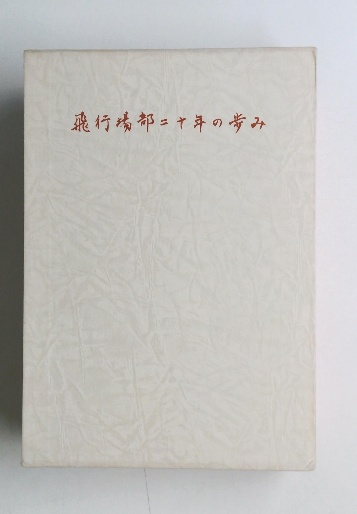 飛行場部二十年の歩み